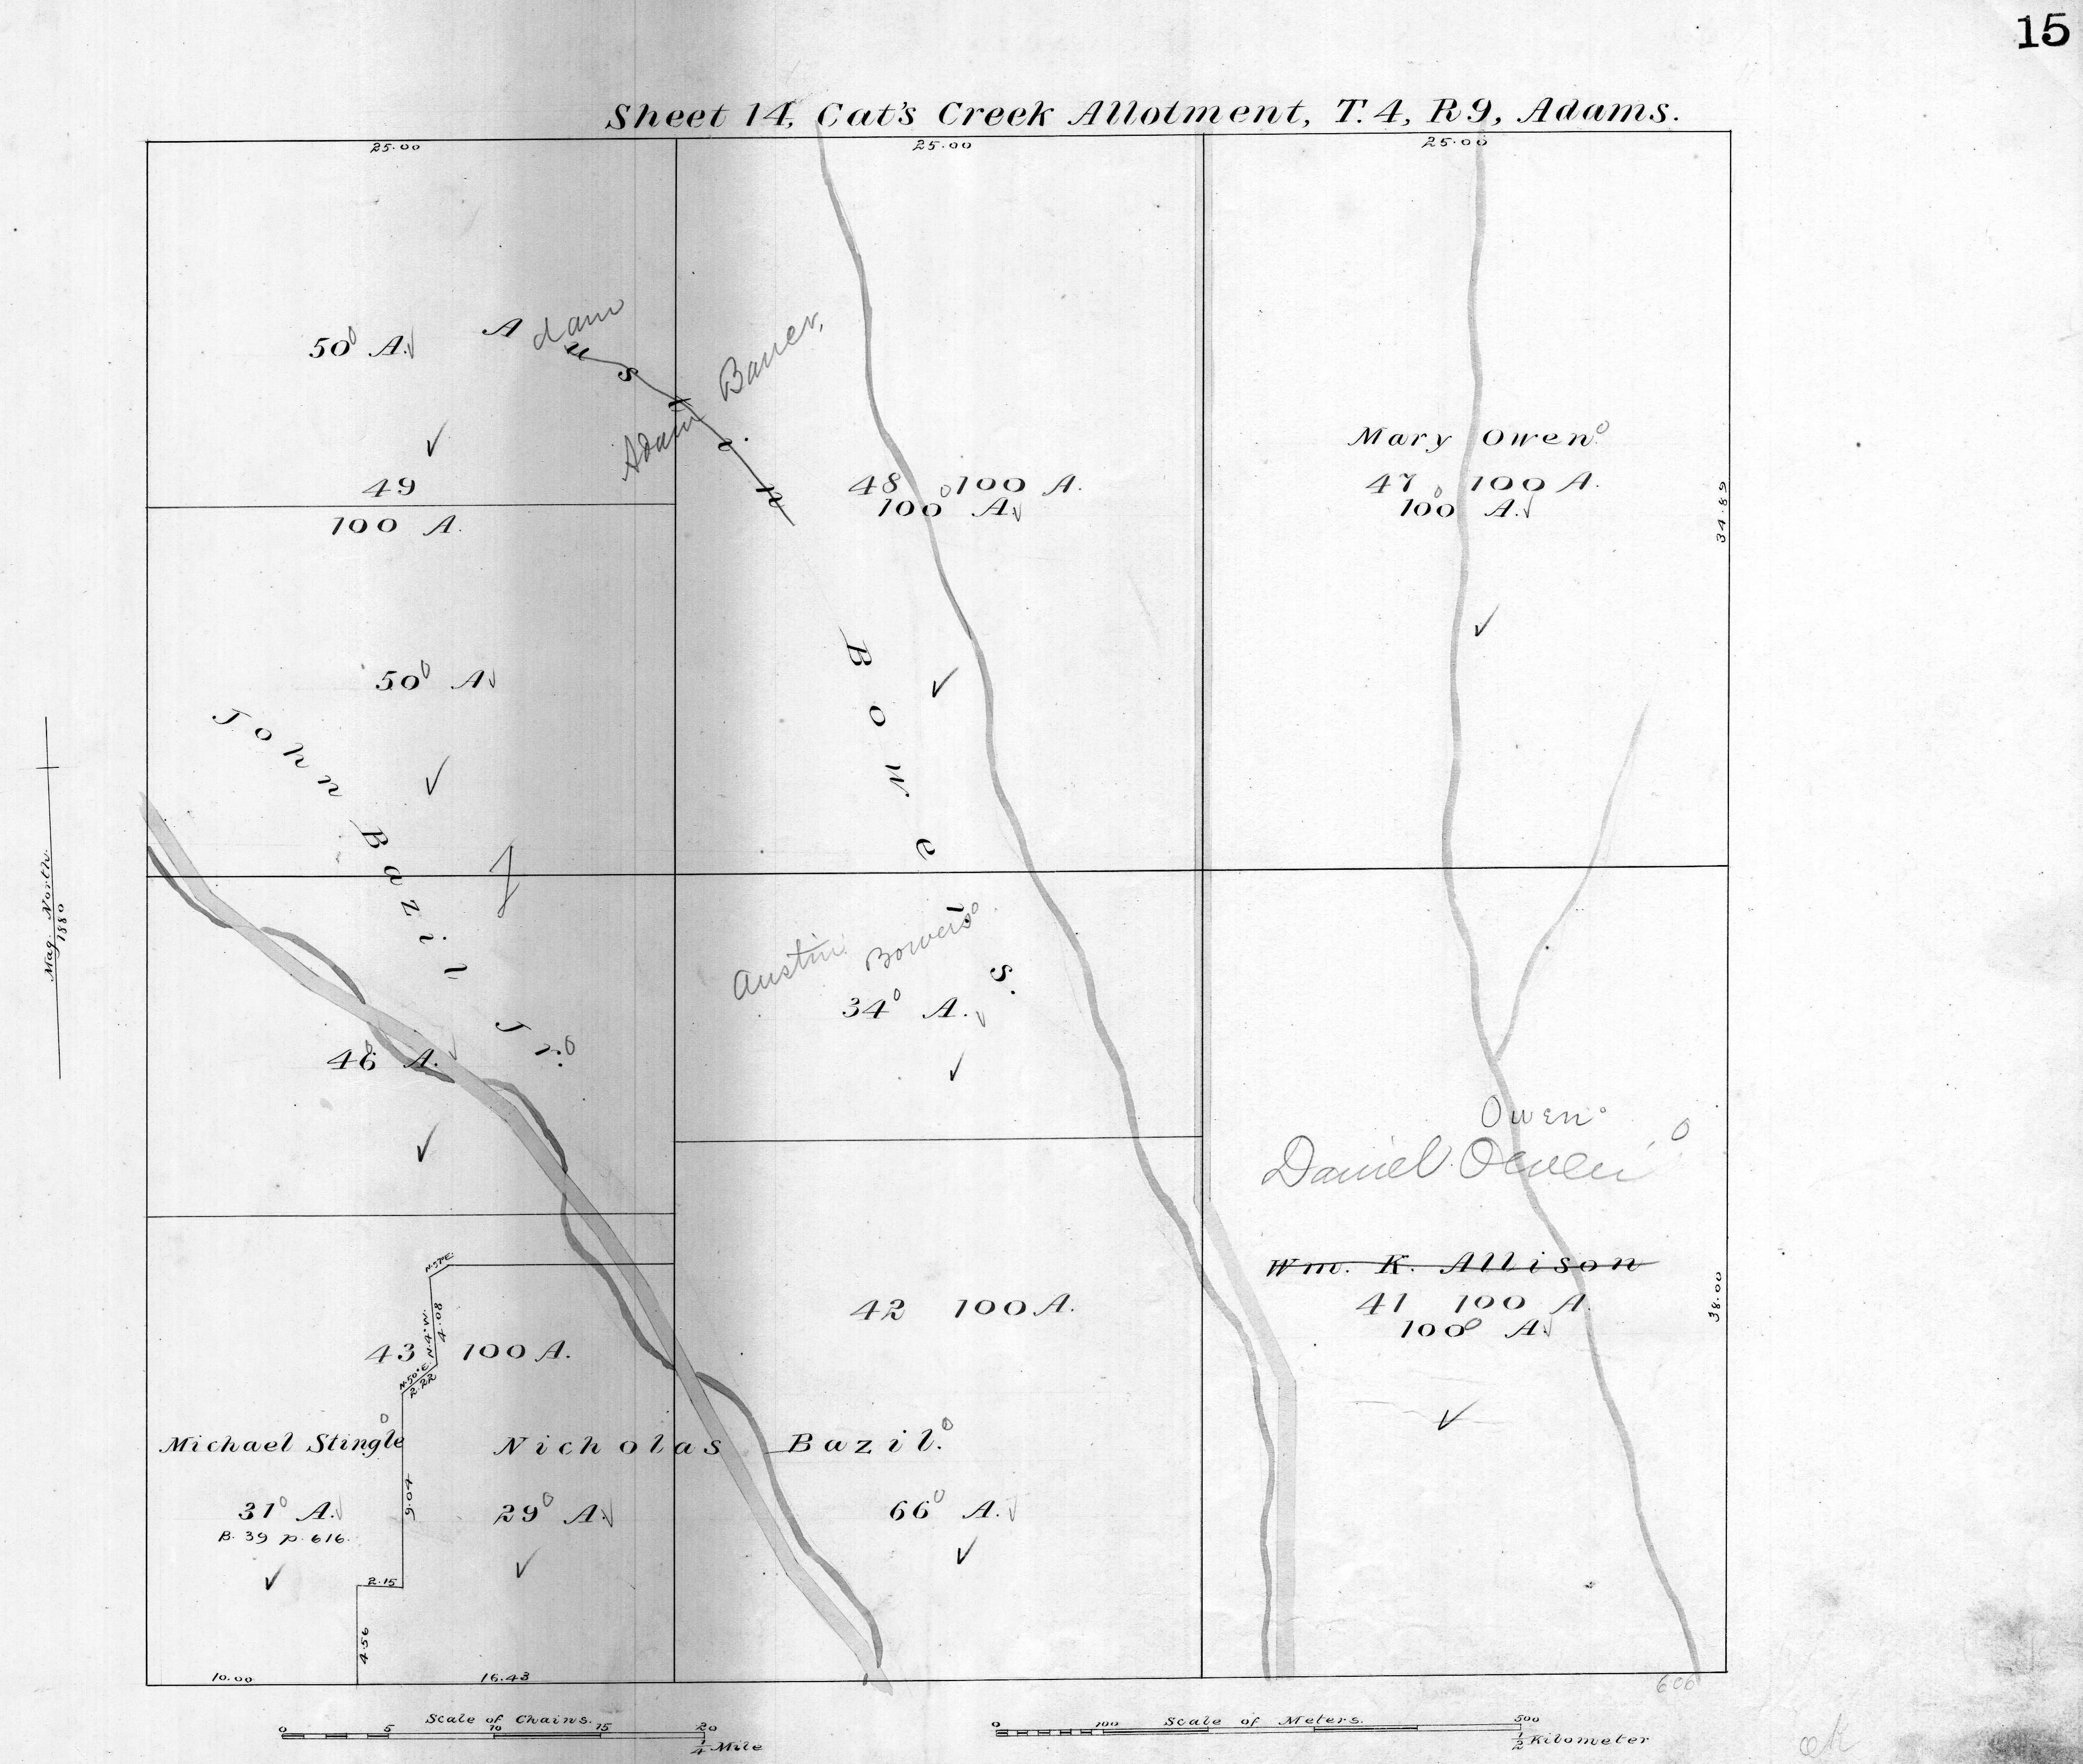 15
Sheet 14, Cat's Creek Allotment, T. 4, R 9, Adams.
25.00
25.00
25.00
50 A.
Adam
Austin
Bauer,
Adam
49
100 A.
48 100 A.
100 A.
Mary Owen
47 100 A.
100 A.
34.89
50 A
John Bazil Jr.
Bowers.
Mag. North.
1880
Austin Bowers
34 A.
46 A.
Owen
Daniel Owen
Wm. K. Allison
41 100 A.
100 A.
38.00
42 100 A.
N. 4° W.
4.08
43 100 A.
N. 50° E.
2.22
Michael Stingle
Nicholas Bazil.
31 A.
B. 39 p. 616.
9.04
29 A.
66 A.
2.15
4.56
10.00
16.43
606
Scale of Chains.
0 5 10 15 20
1/4 Mile
Scale of Meters.
0 100 500
1/2 Kilometer
ok